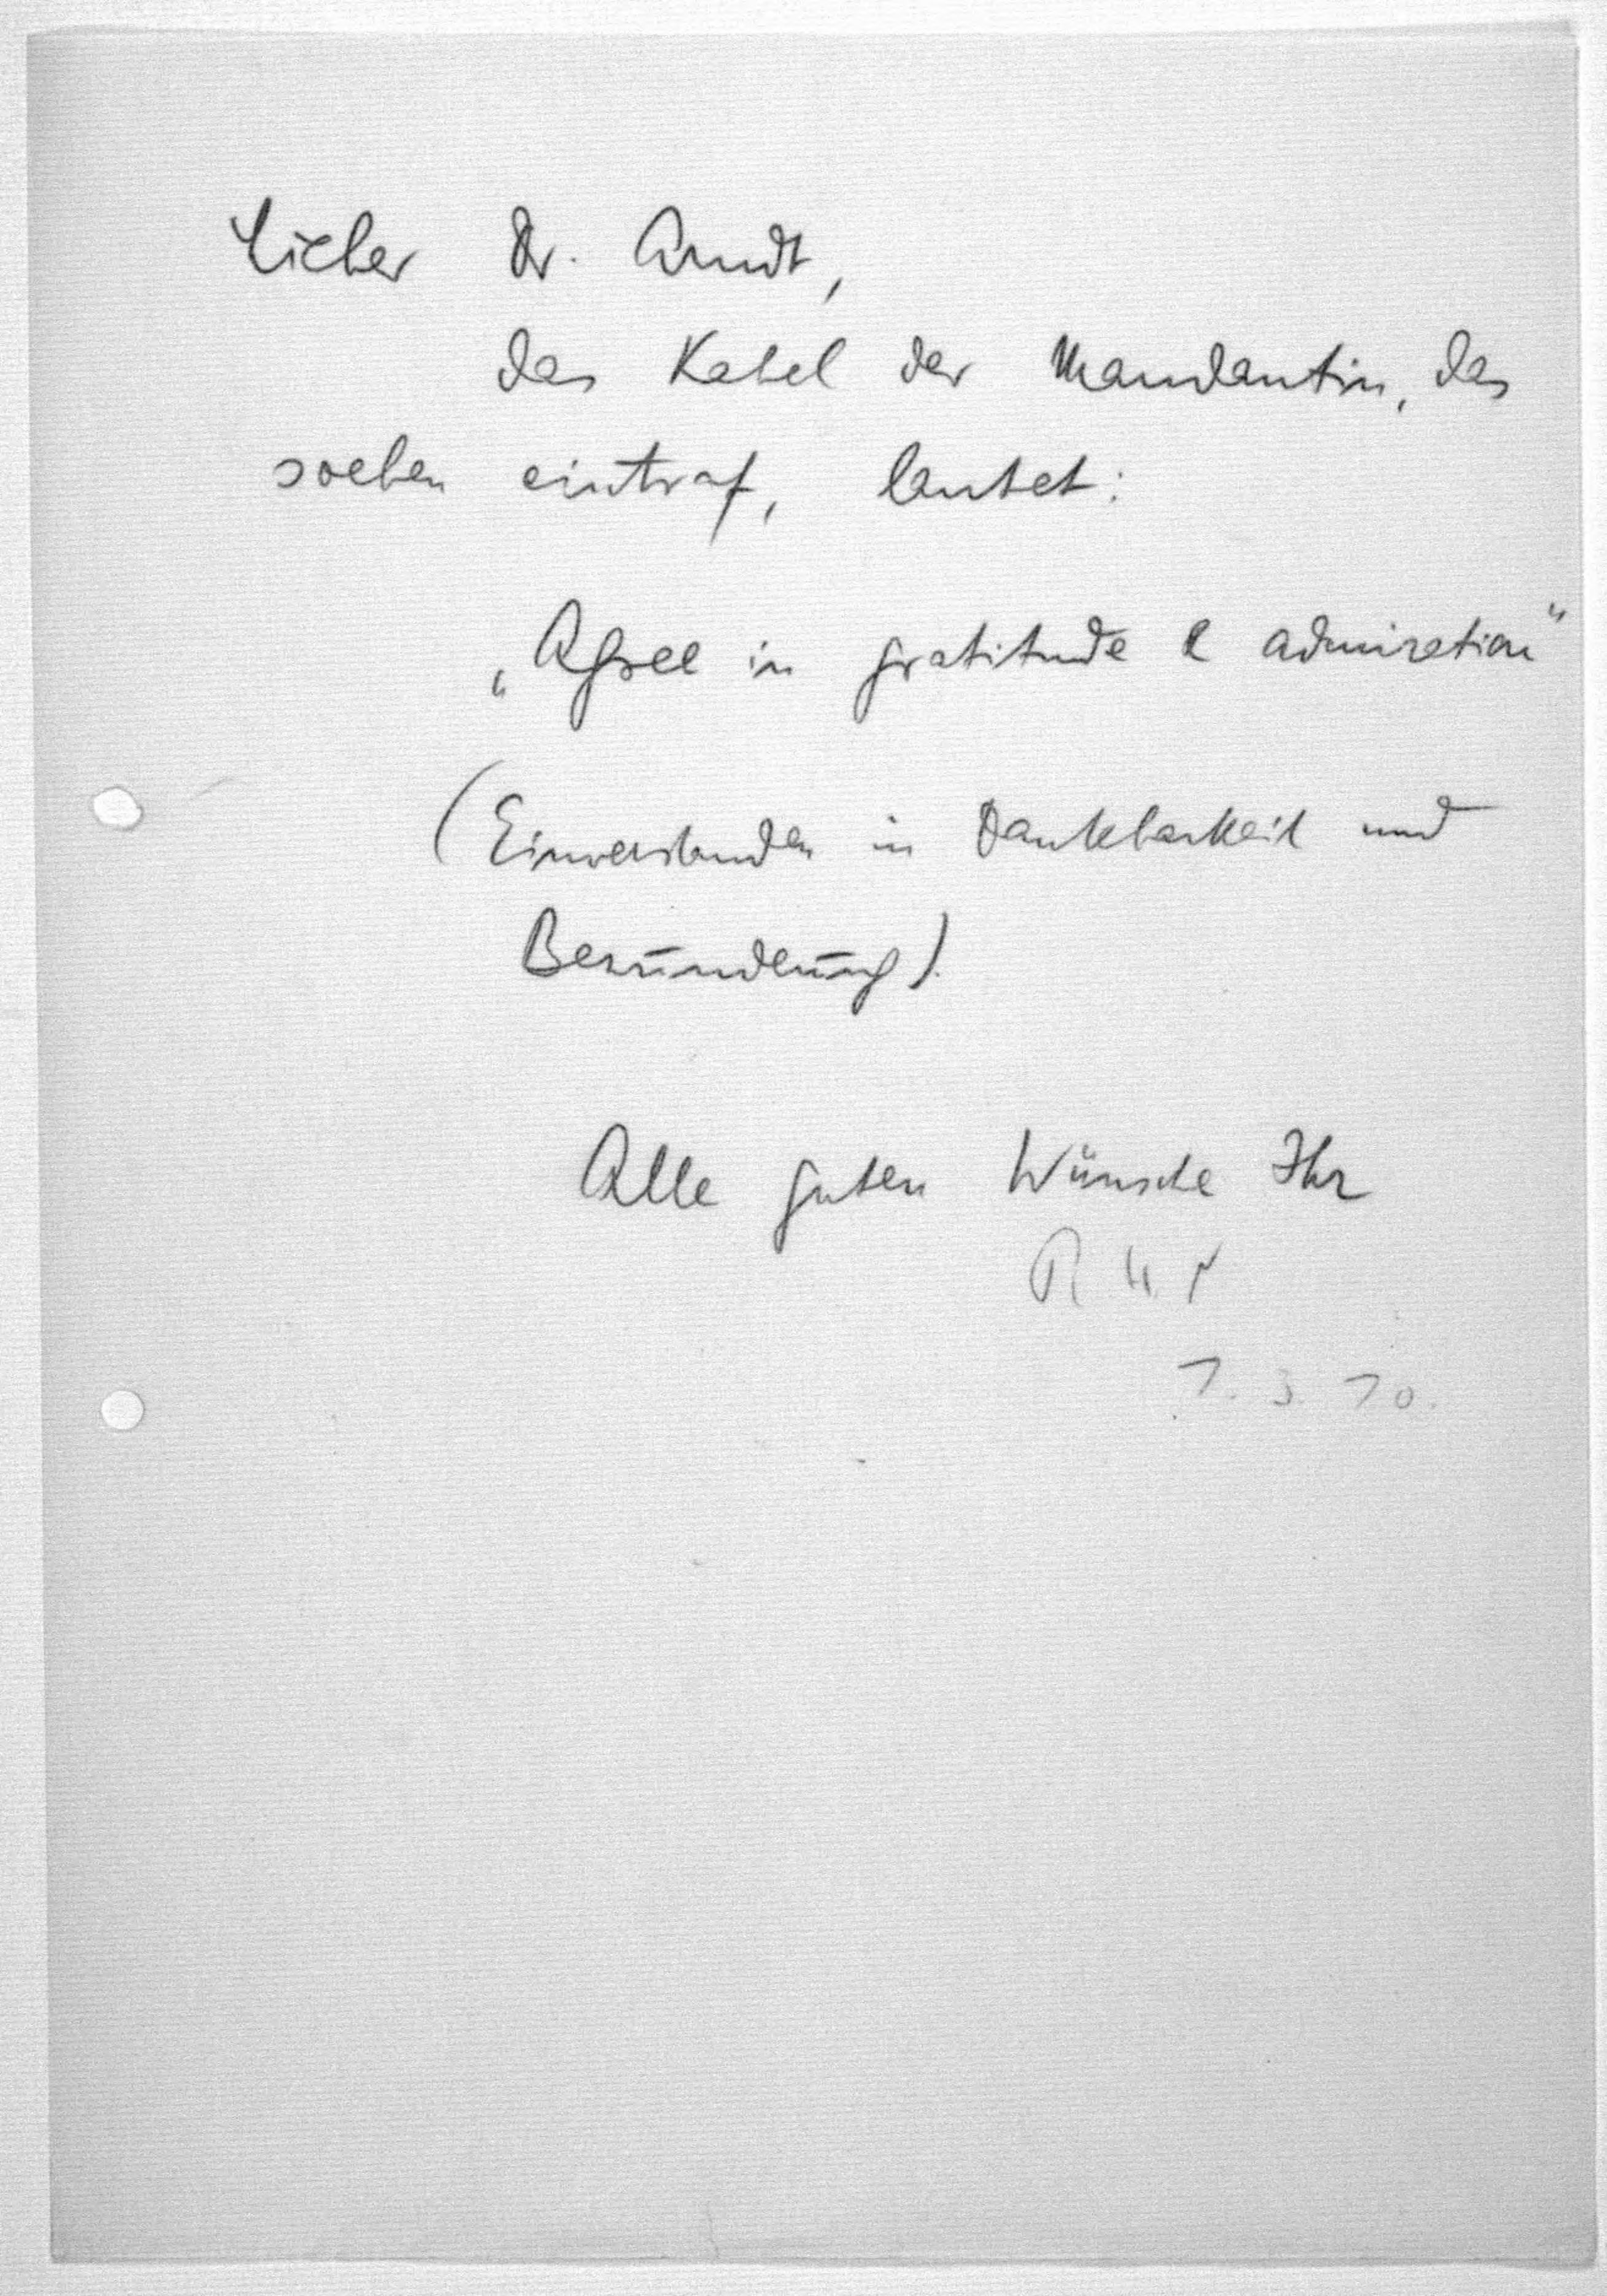 Lieber Dr. Arndt,
das Kabel der Mandantin, das
soeben eintraf, lautet:
„Agree in gratitude & admiration“
(Einverstanden in Dankbarkeit und
Bewunderung).
Alle guten Wünsche Ihr
1. 3. 70.